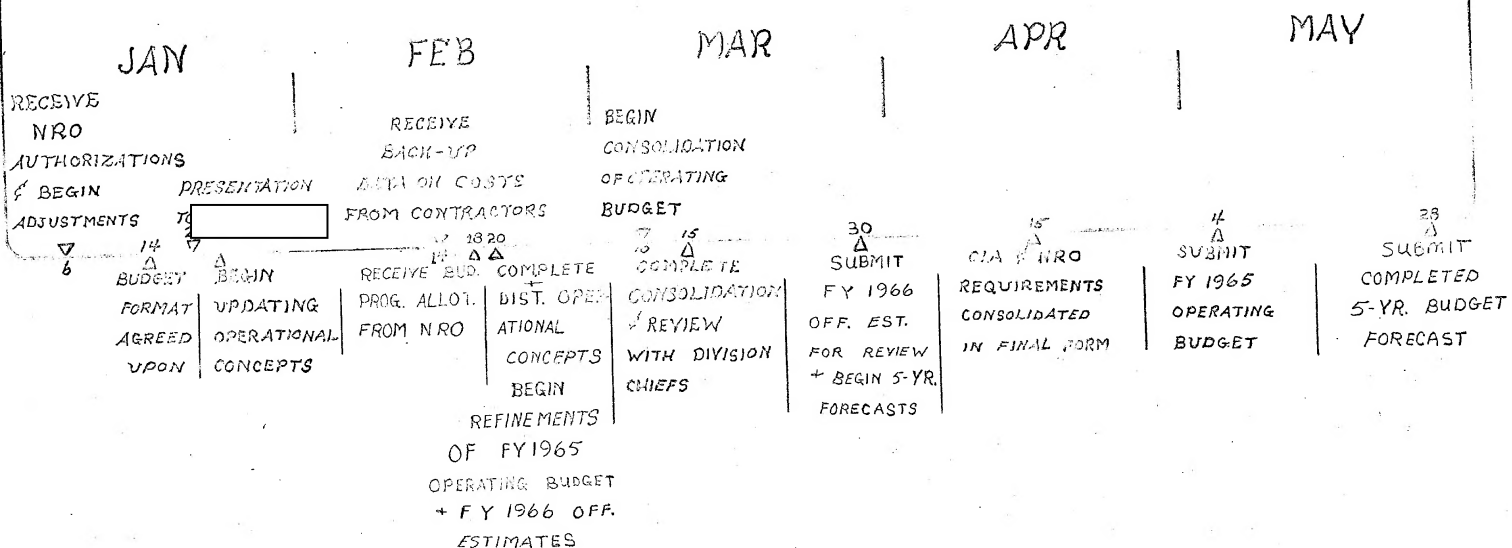 JAN
FEB
MAR
APR
MAY
RECEIVE
NRO
AUTHORIZATIONS
& BEGIN
ADJUSTMENTS
PRESENTATION
TO
RECEIVE
BACK-UP
DATA ON COSTS
FROM CONTRACTORS
BEGIN
CONSOLIDATION
OF OPERATING
BUDGET
6
14
BUDGET
FORMAT
AGREED
UPON
BEGIN
UPDATING
OPERATIONAL
CONCEPTS
RECEIVE BUD.
PROG. ALLOT.
FROM NRO
18 20
COMPLETE
+
DIST. OPER-
ATIONAL
CONCEPTS
BEGIN
REFINEMENTS
OF FY1965
OPERATING BUDGET
+ FY 1966 OFF.
ESTIMATES
15
COMPLETE
CONSOLIDATION
& REVIEW
WITH DIVISION
CHIEFS
30
SUBMIT
FY 1966
OFF. EST.
FOR REVIEW
+ BEGIN 5-YR.
FORECASTS
15
CIA & NRO
REQUIREMENTS
CONSOLIDATED
IN FINAL FORM
SUBMIT
FY 1965
OPERATING
BUDGET
28
SUBMIT
COMPLETED
5-YR. BUDGET
FORECAST